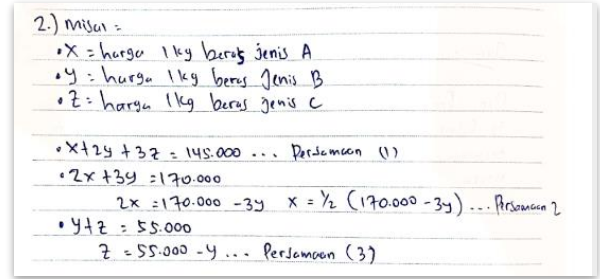 2.) Misal :
• X = harga 1 kg beras jenis A
• y = harga 1 kg beras Jenis B
• Z = harga 1 kg beras jenis C
• x + 2y + 3z = 145.000 ... Persamaan (1)
• 2x + 3y = 170.000
2x = 170.000 - 3y x = 1/2 (170.000 - 3y) ... Persamaan 2
• y + z = 55.000
z = 55.000 - y ... Persamaan (3)